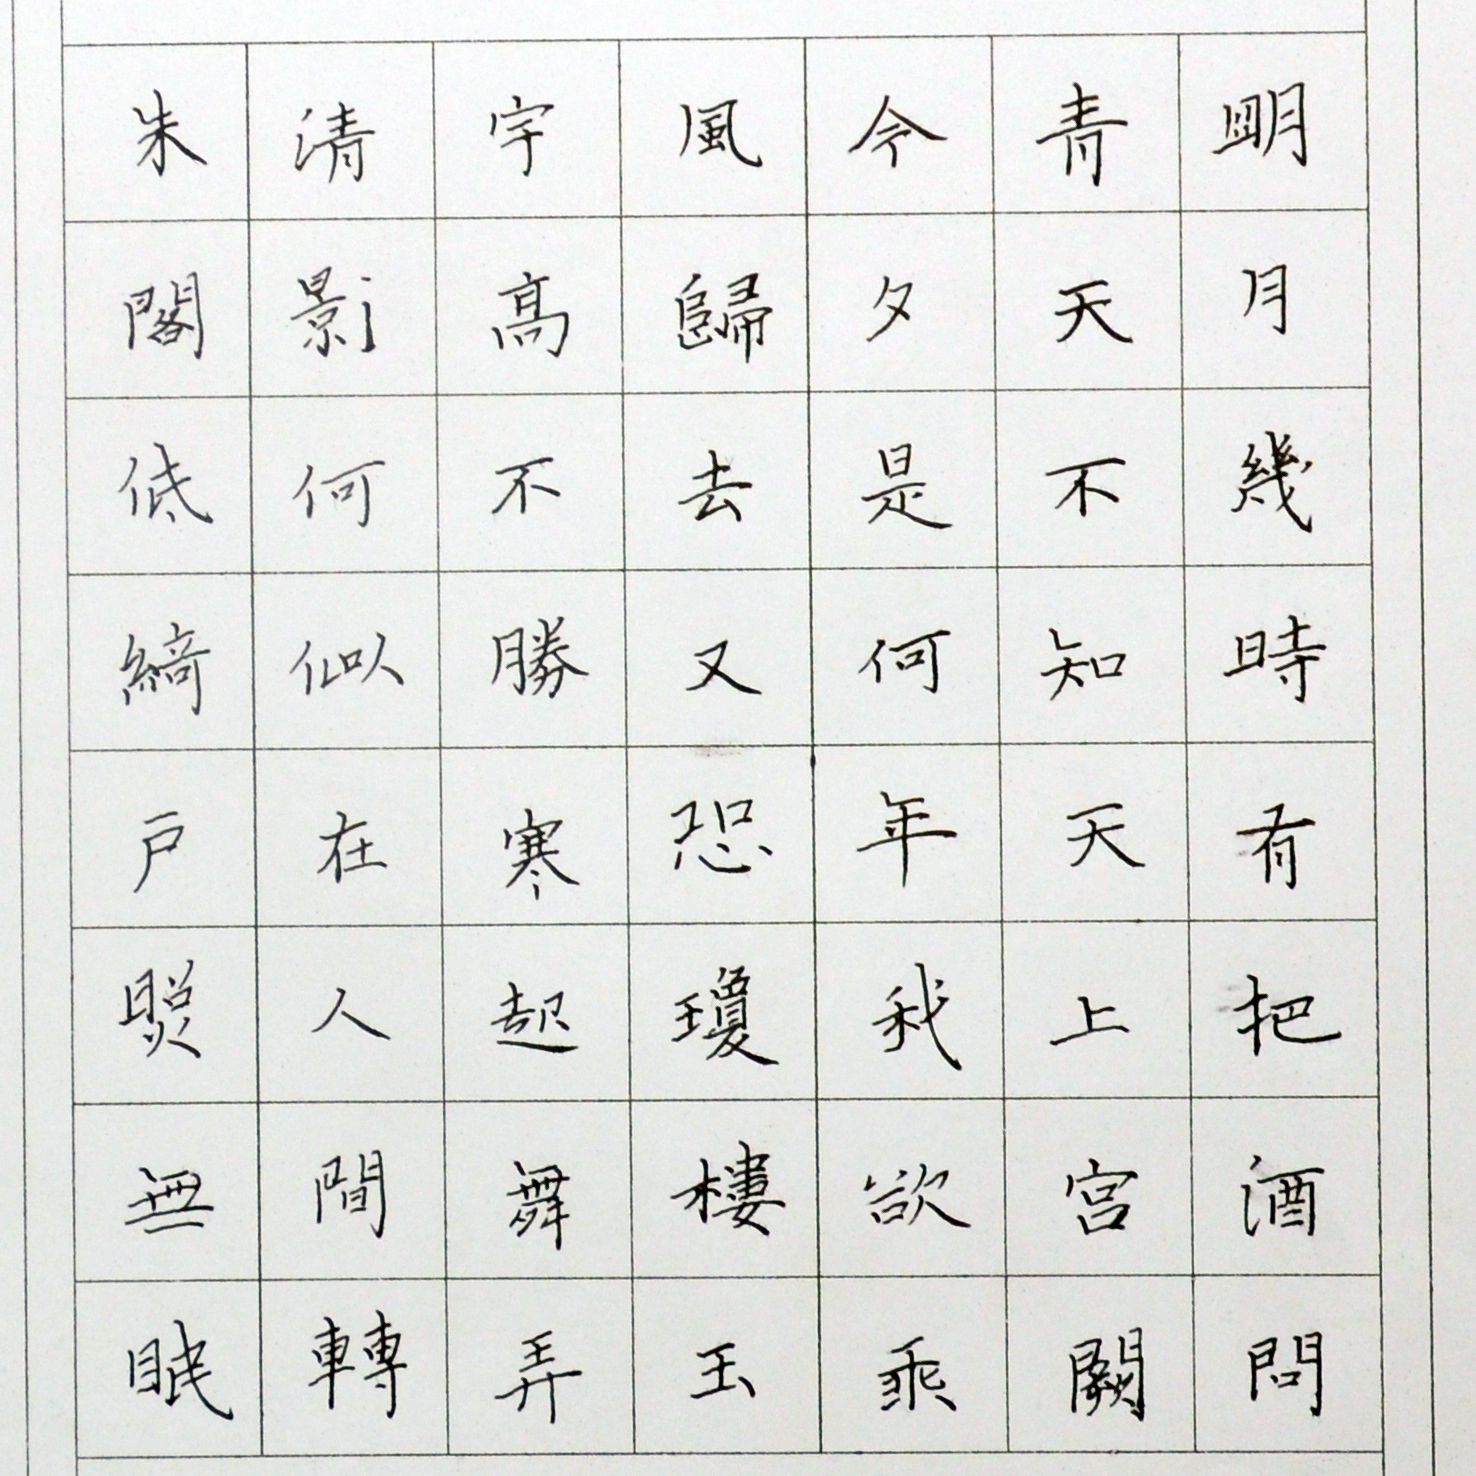 明月幾時有把酒問
青天不知天上宫闕
今夕是何年我欲乘
風歸去又恐瓊樓玉
宇高不勝寒起舞弄
清影何似在人間轉
朱閣低綺戶照無眠